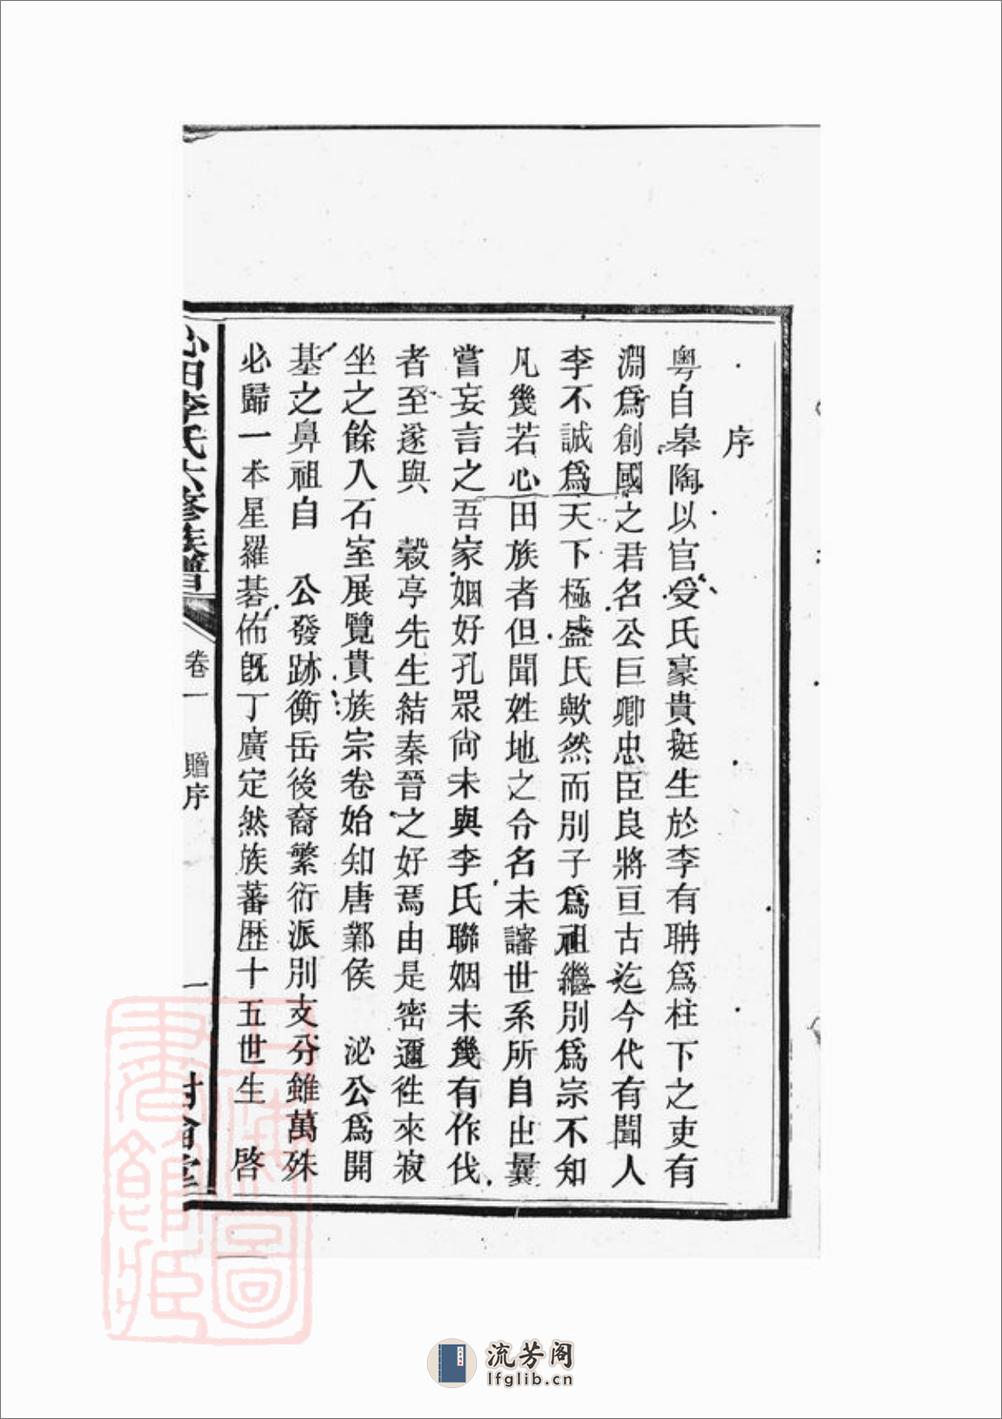 序
粵自皋陶以官受氏豪貴挺生於李有聃爲柱下之吏有
淵爲創國之君名公巨卿忠臣良將亘古迄今代有聞人
李不誠爲天下極盛氏歟然而別子爲祖繼別爲宗不知
凡幾若心田族者但聞姓地之令名未讅世系所自出曩
嘗妄言之吾家姻好孔眾尙未與李氏聯姻未幾有作伐
者至遂與 穀亭先生結秦晉之好焉由是密邇徃來寂
坐之餘人石室展覽貴族宗卷始知唐鄴侯 泌公爲開
基之鼻祖自 公發跡衡岳後裔繁衍派別支分雖萬殊
必歸一本星羅碁佈旣丁廣定然族蕃歷十五世生 啓
心田李氏六修族譜
卷一 贈序
一
流芳阁
lfglib.cn